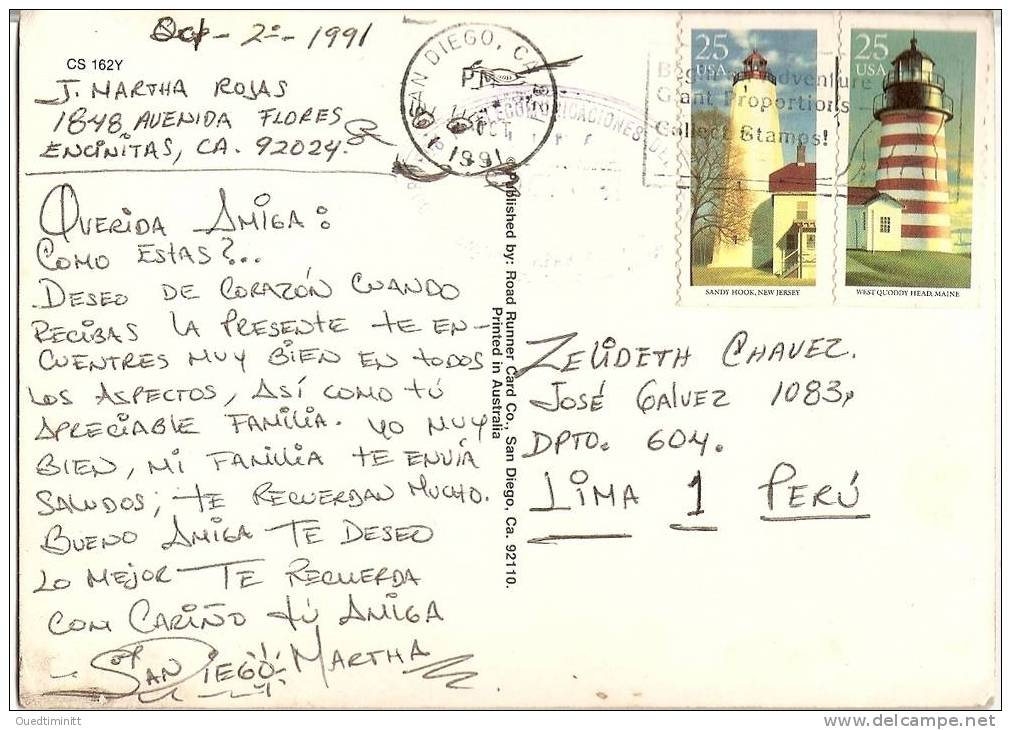 Oct - 2 - 1991
CS 162Y
J. MARTHA ROJAS
1848 AVENIDA FLORES
ENCINITAS, CA. 92024.
SAN DIEGO, CA
PM
OCT
1991
TELECOMUNICACIONES
Giant Proportions
Collect Stamps!
25
USA
SANDY HOOK, NEW JERSEY
25
USA
WEST QUODDY HEAD, MAINE
QUERIDA AMIGA:
COMO ESTAS?..
DESEO DE CORAZÓN CUANDO
RECIBAS LA PRESENTE TE EN-
CUENTRES MUY BIEN EN TODOS
LOS ASPECTOS, ASÍ COMO TÚ
APRECIABLE FAMILIA. YO MUY
BIEN, MI FAMILIA TE ENVIA
SALUDOS; TE RECUERDAN MUCHO.
BUENO AMIGA TE DESEO
LO MEJOR TE RECUERDA
CON CARIÑO TÚ AMIGA
MARTHA
SAN DIEGO
Published by: Road Runner Card Co., San Diego, Ca. 92110.
Printed in Australia
ZELIDETH CHAVEZ.
JOSÉ GALVEZ 1083,
DPTO. 604.
LIMA 1 PERÚ
Ouedtiminitt
delcampe.net